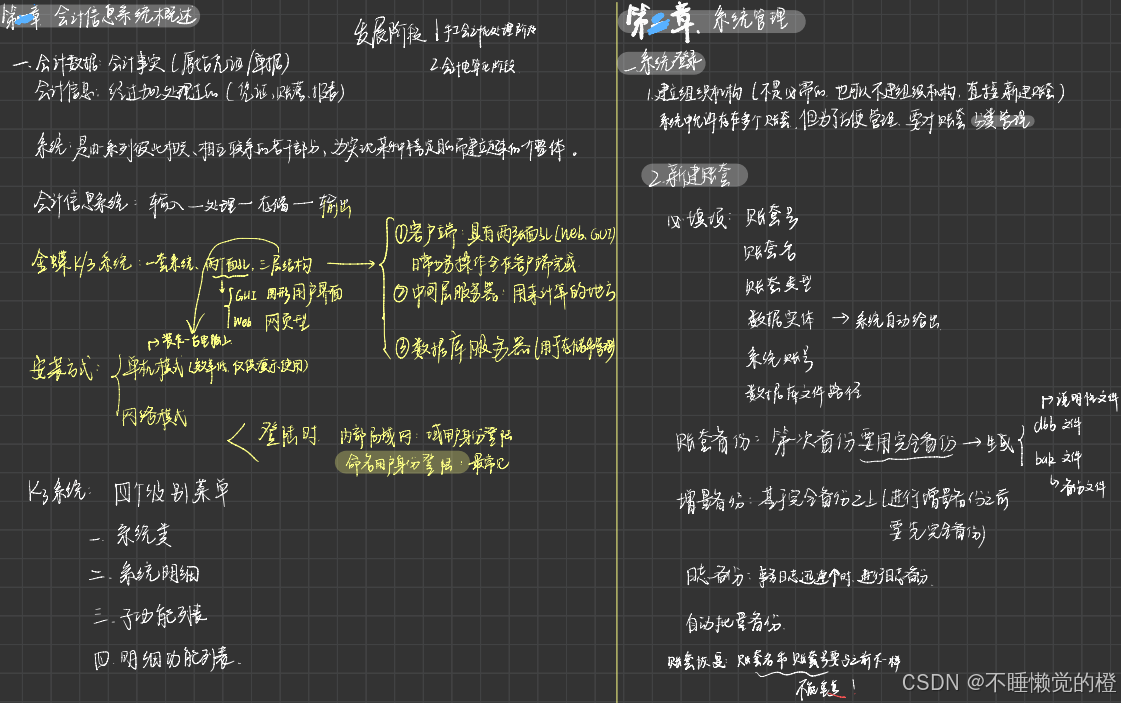 第一章 会计信息系统概述
发展阶段 1 手工会计处理阶段
2 会计电算化阶段
一.会计数据:会计事实(原始凭证/单据)
会计信息:经过加工处理过的(凭证,账簿,报表)
系统:是由一系列彼此相关、相互联系的若干部分,为实现某种特定目的而建立起来的一个整体。
会计信息系统:输入—处理—存储—输出
金蝶K/3系统:一套系统、两个面孔,三层结构
GUI 图形用户界面
Web 网页型
①客户端:具有两张面孔(Web,GUI)
日常业务操作全在客户端完成
②中间层服务器:用来计算的地方
③数据库服务器(用于存储和管理)
装在一台电脑上
安装方式:
单机模式(效率低,仅供演示使用)
网络模式
登陆时 内部局域网:域用户身份登陆
命名用户身份登陆:最常见
K3系统:四个级别菜单
一.系统类
二.系统明细
三.子功能列表
四.明细功能列表.
第二章.系统管理
一.系统登录
1.建立组织机构(不是必需的,也可以不建组织机构,直接新建账套)
系统中允许存在多个账套,但为了方便管理,要对账套分类管理
2.新建账套
必填项:账套号
账套名
账套类型
数据实体 → 系统自动给出
系统账号
数据库文件路径
账套备份:第一次备份要用完全备份 → 生成
说明性文件
dbb 文件
bak 文件
备份文件
增量备份:基于完全备份之上(进行增量备份之前
要先完全备份)
日志备份:事务日志迅速个时,进行日志备份.
自动批量备份.
账套恢复:账套名和账套号要与之前不一样
不能重复!
CSDN @不睡懒觉的橙